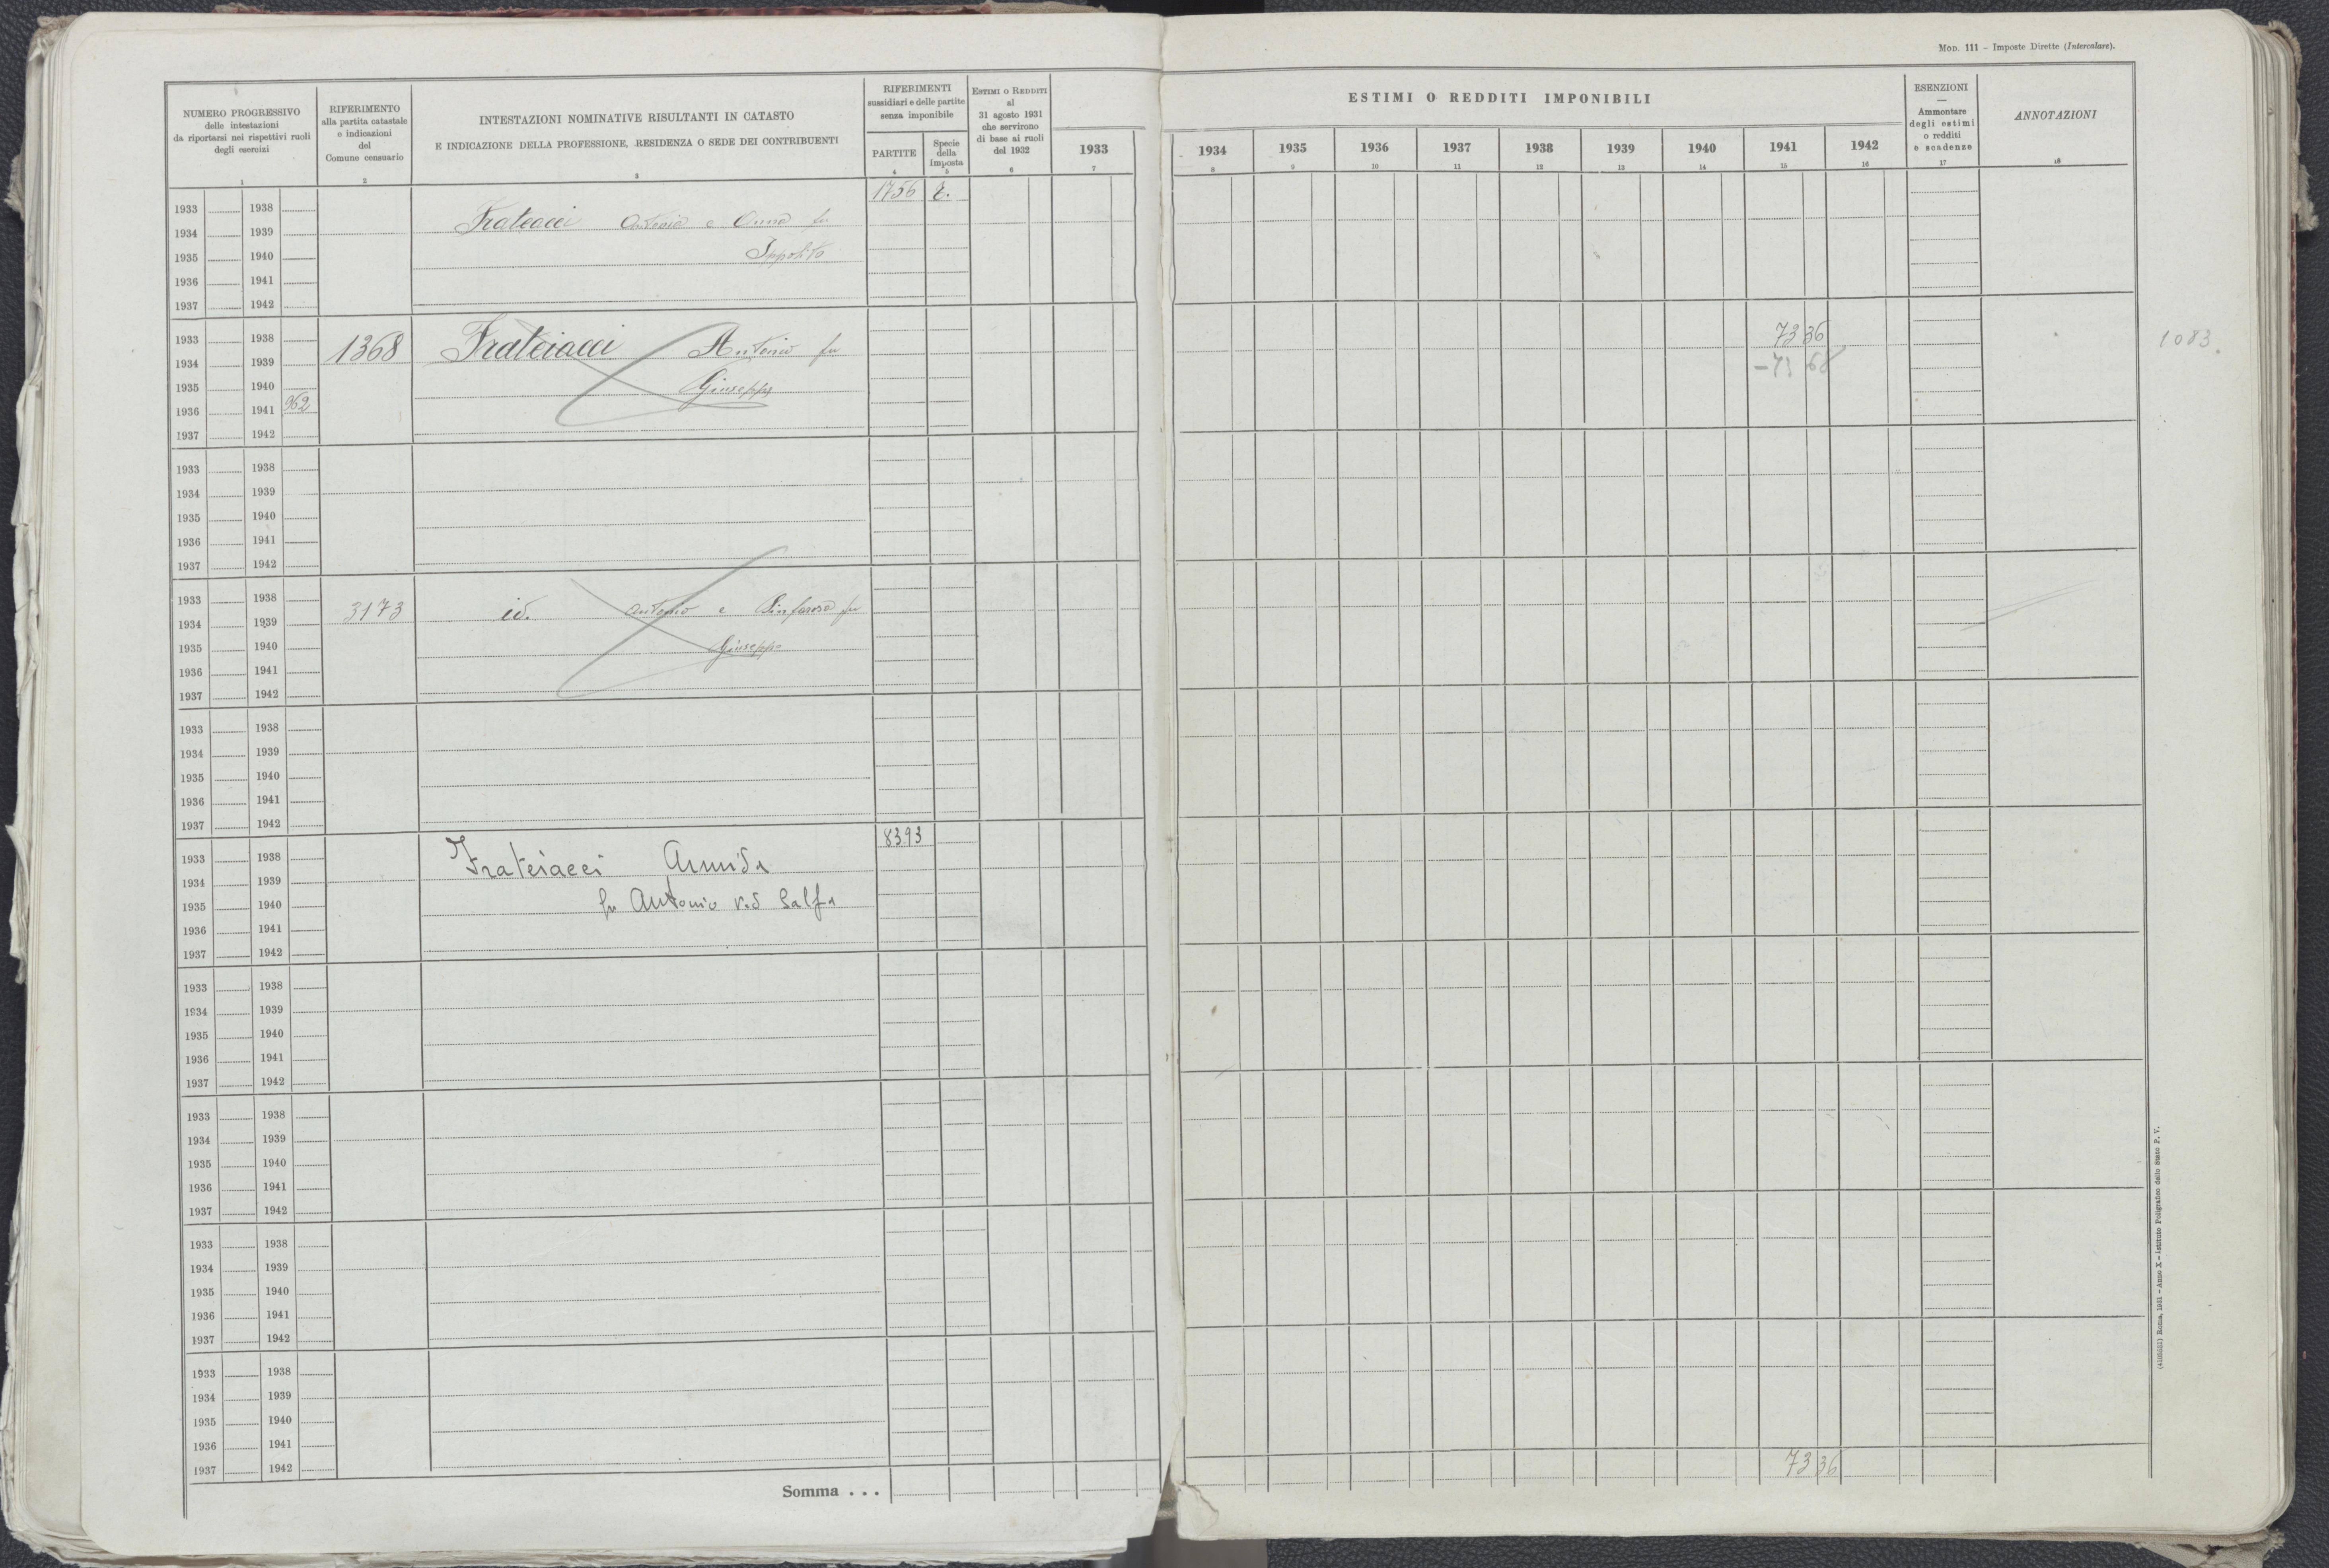 Mod. 111 – Imposte Dirette (Intercalare).
NUMERO PROGRESSIVO
delle intestazioni
da riportarsi nei rispettivi ruoli
degli esercizi
1
RIFERIMENTO
alla partita catastale
e indicazioni
del
Comune censuario
2
INTESTAZIONI NOMINATIVE RISULTANTI IN CATASTO
E INDICAZIONE DELLA PROFESSIONE, RESIDENZA O SEDE DEI CONTRIBUENTI
3
RIFERIMENTI
sussidiari e delle partite
senza imponibile
PARTITE
4
Specie
della
Imposta
5
Estimi o Redditi
al
31 agosto 1931
che servirono
di base ai ruoli
del 1932
6
1933
7
ESTIMI O REDDITI IMPONIBILI
1934 1935 1936 1937 1938 1939 1940 1941 1942
8 9 10 11 12 13 14 15 16
ESENZIONI
—
Ammontare
degli estimi
o redditi
e scadenze
17
ANNOTAZIONI
18
1756
1933 1938
Frateiacci Antonia e Anna fu
1934 1939
Ippolito
1935 1940
1936 1941
1937 1942
1933 1938
1368 Frateiacci Antonio fu 73 36
1083
1934 1939
– 73 68
1935 1940
Giuseppe
1936 1941 962
1937 1942
1933 1938
1934 1939
1935 1940
1936 1941
1937 1942
1933 1938
3173 id. Antonio e Sinforosa fu
1934 1939
1935 1940
Giuseppe
1936 1941
1937 1942
1933 1938
1934 1939
1935 1940
1936 1941
1937 1942
8393
1933 1938
Frateiacci Armida
1934 1939
1935 1940
fu Antonio ved Salfa
1936 1941
1937 1942
1933 1938
1934 1939
1935 1940
1936 1941
1937 1942
1933 1938
1934 1939
1935 1940
1936 1941
1937 1942
1933 1938
1934 1939
1935 1940
1936 1941
1937 1942
1933 1938
1934 1939
1935 1940
1936 1941
1937 1942
Somma . . .
73 36
Roma, 1931 – Anno X – Istituto Poligrafico dello Stato P. V.